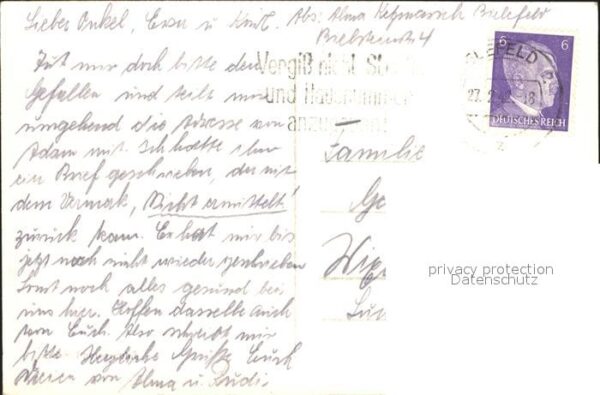 Lieber Onkel, Erna u. Kind. Abs: Alma
Bielefeld
Tut mir doch bitte den
Gefallen und teilt mir
umgehend die Adresse von
Adam mit. Ich hatte ihm
ein Brief geschrieben, der mit
dem Vermerk, Nicht ermittelt
zurück kam. Er hat mir bis
jetzt noch nicht wieder geschrieben
Sonst noch alles gesund bei
uns hier. Hoffen dasselbe auch
von Euch. Also schreibt mir
bitte. Herzliche Grüße Euch
von Alma u. Rudi
Vergiß nicht
und
6 6
27. 2. 16
DEUTSCHES REICH
Familie
Ge
privacy protection
Datenschutz